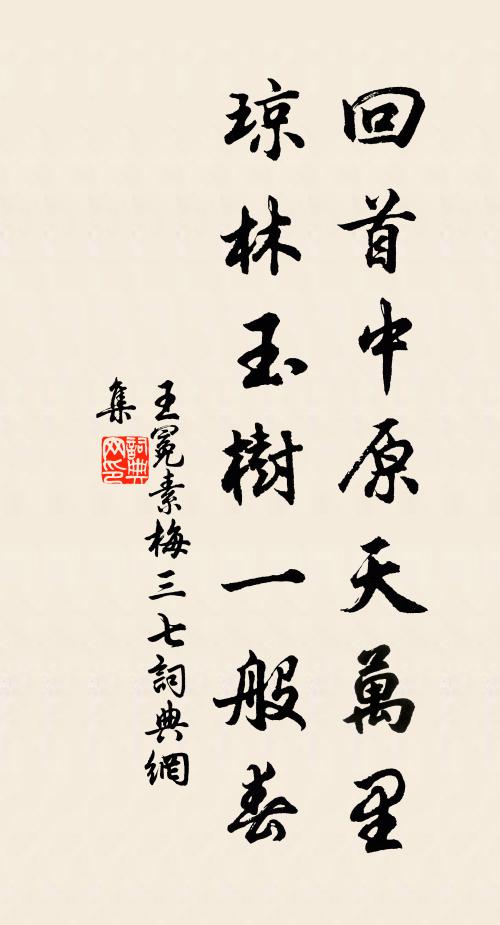 回首中原天萬里
琼林玉樹一般春
王冕素梅三七詞典網
集
詞典網印